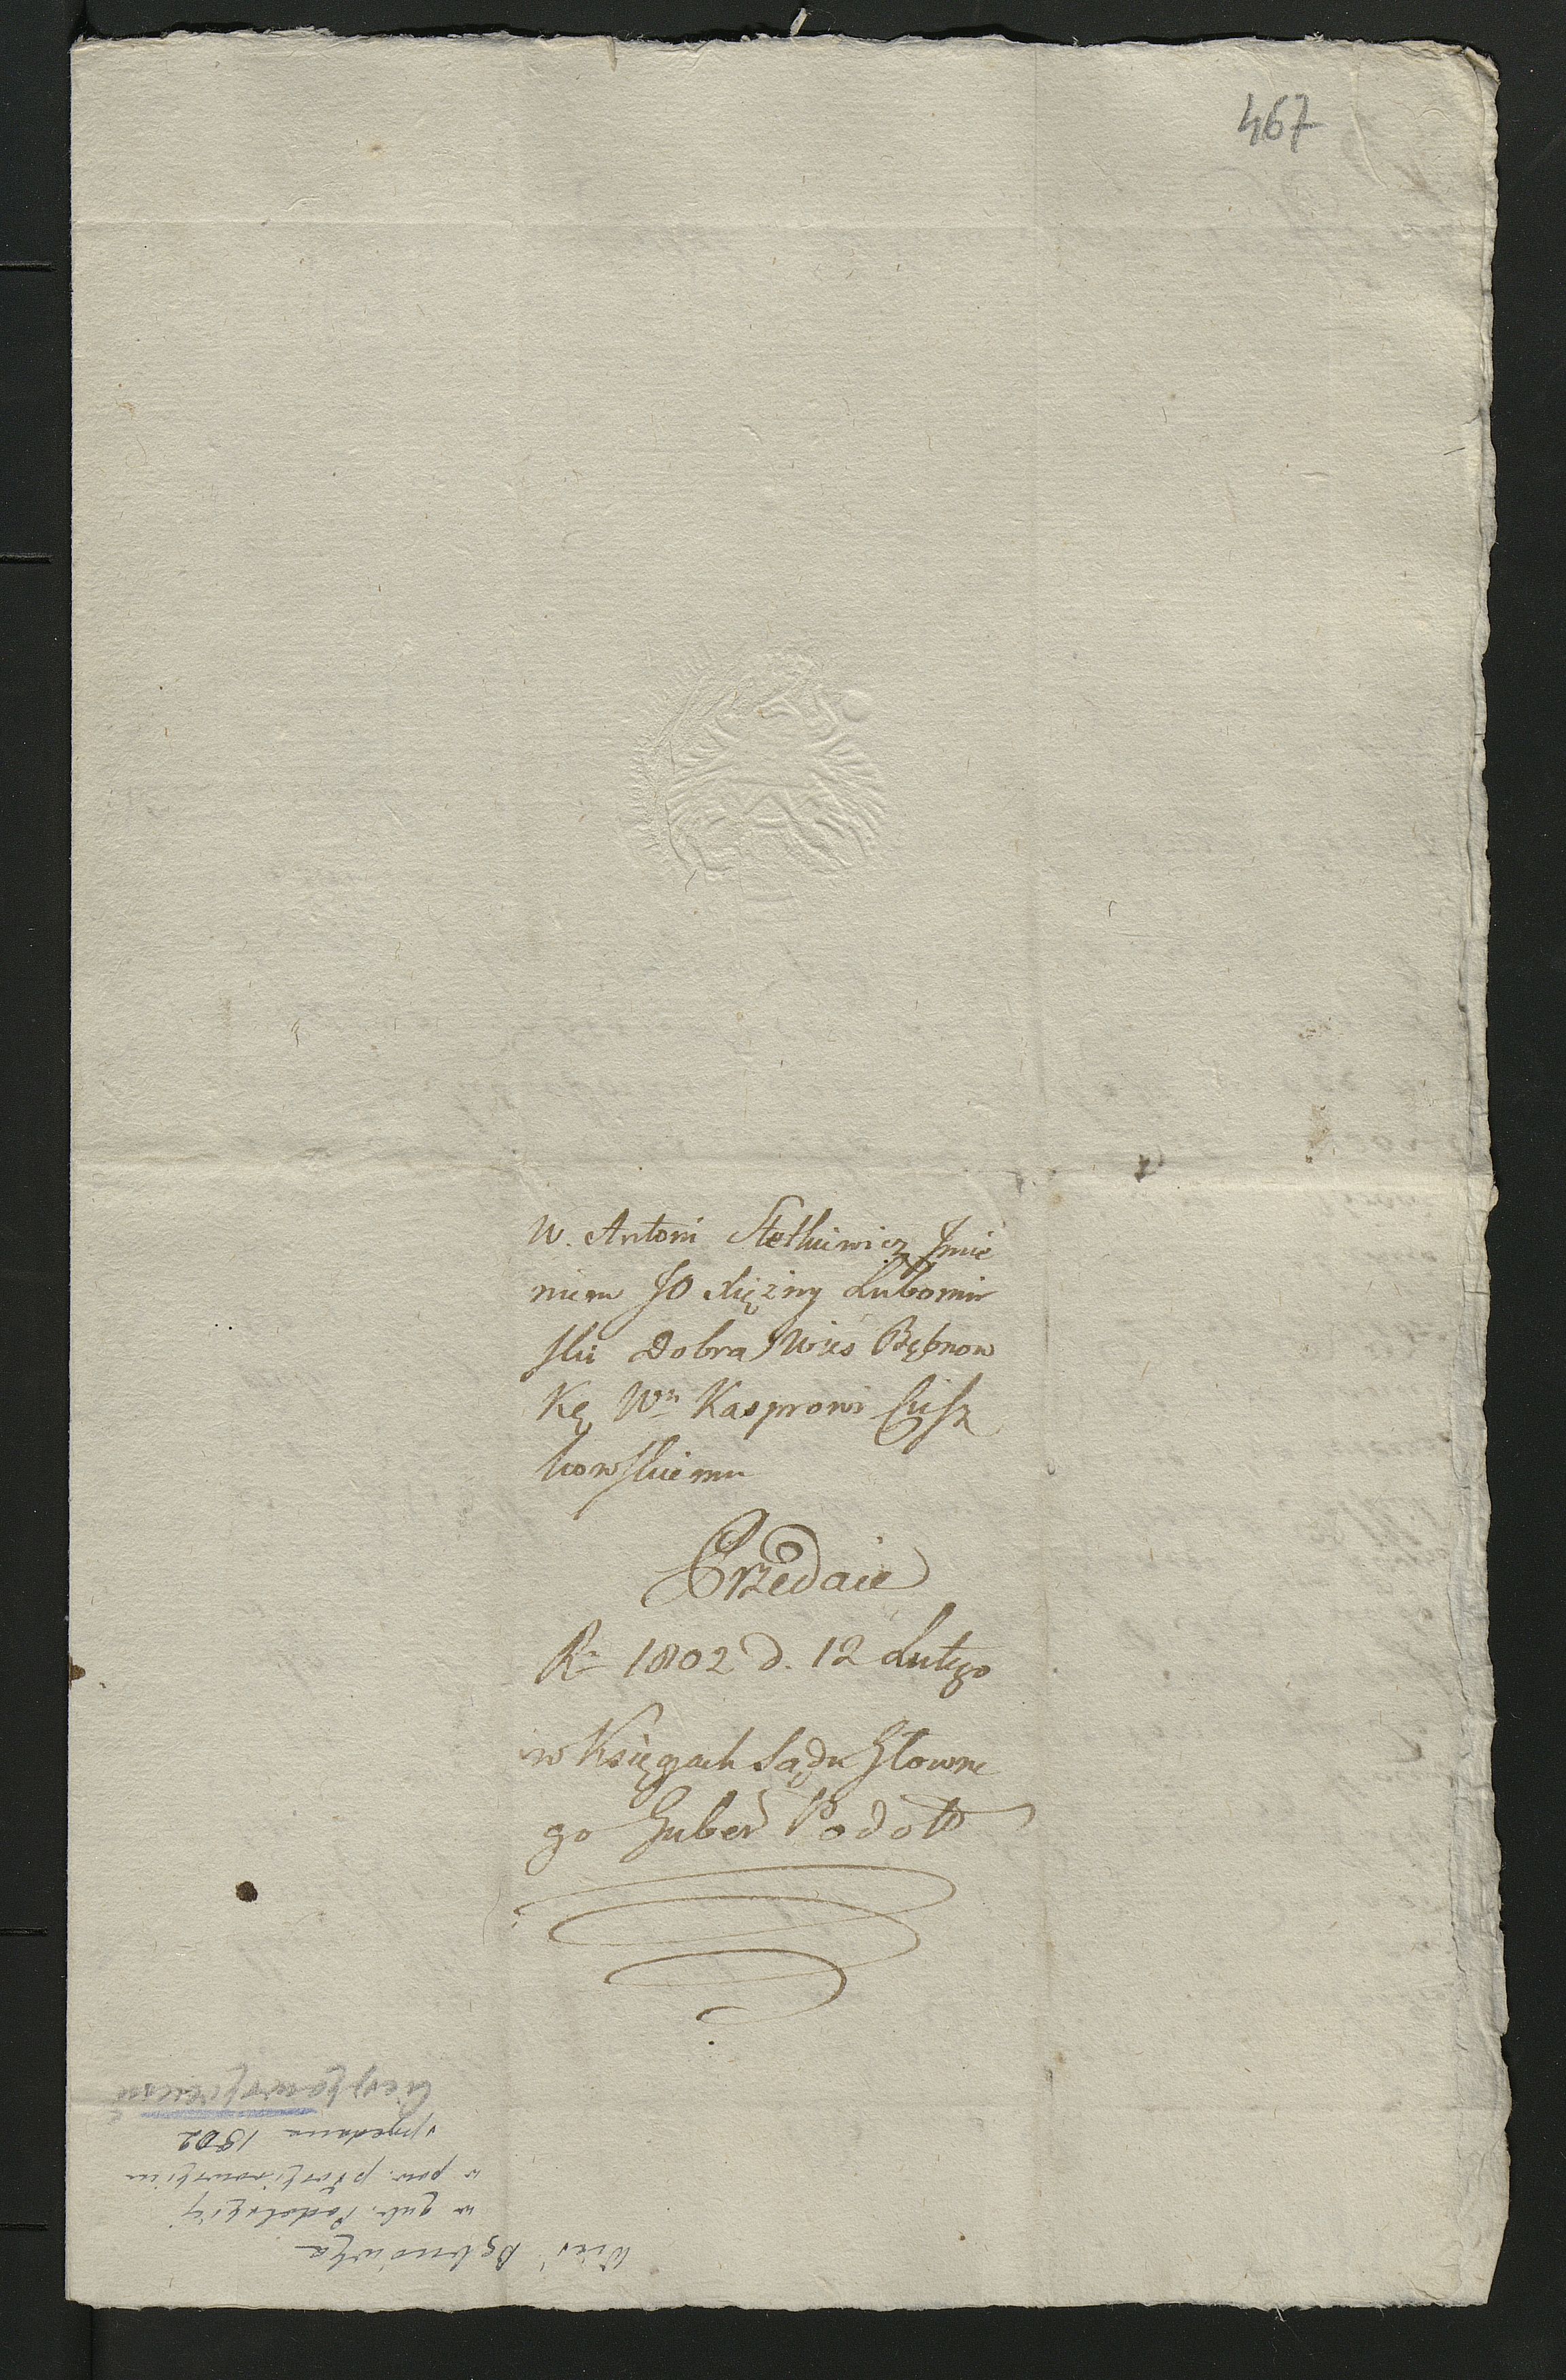 467
W. Antoni Stetkiewicz Jmie
niem JO Xiężny Lubomir
skii Dobra Wies Bębnow
Kę Wn Kasprowi Cisz
kowskiemu
Przedaie
Rn 1802 d. 12 Lutego
w Księgach Sądu Głowne
go Guber Podol
Wieś Bębnówka
w gub. Podolskiej
w pow. płoskirowskim
sprzedana 1802
Cieszkowskiemu